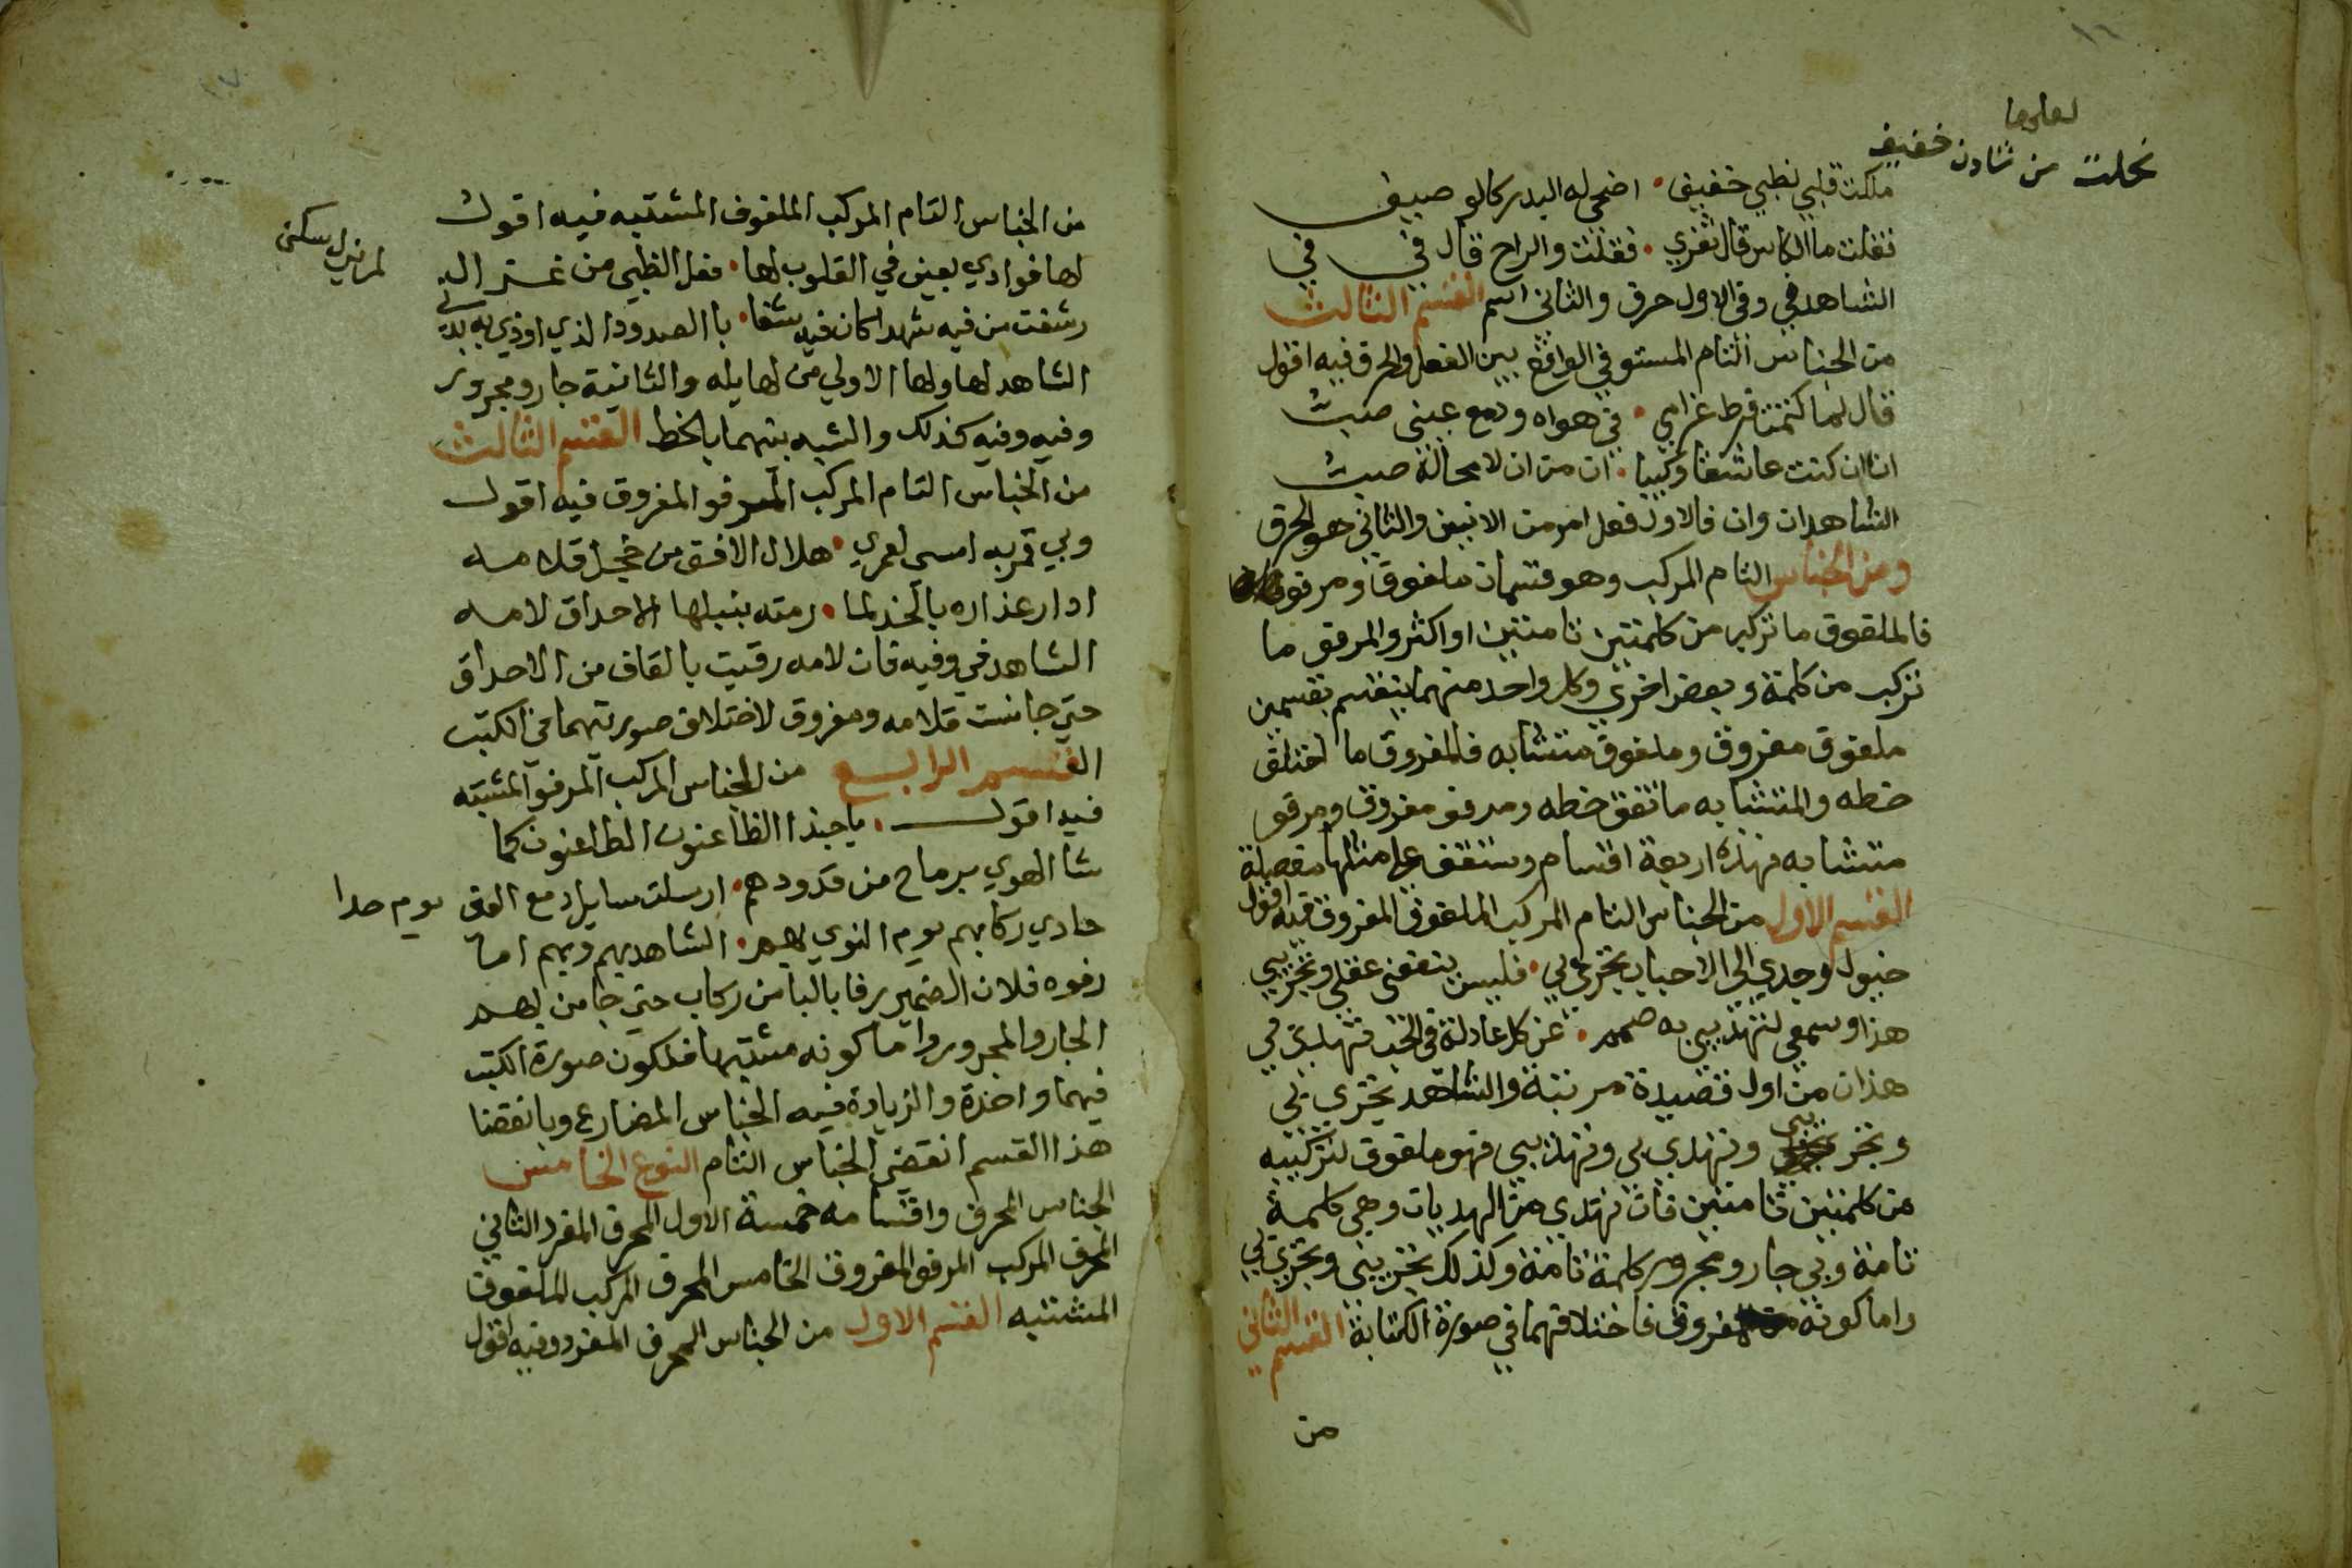 ١٦
نحلت من شادن خفيف
ملكت قلبي بظبي خفيف . اضحى له البدر كالوصيف
فقلت ما الكاس قال ثغري . فقلت والراح قال في في
الشاهد في وفي الاول حرف والثاني اسم القسم الثالث
من الجناس التام المستوفي الواقع بين الفعل والحرف فيه اقول
قال لما كتمت فرط غرامي . في هواه ودمع عيني صبيب
ان ان كنت عاشقا وكئيبا . ان من ان لا محالة صب
الشاهد ان وان فالاول فعل امر من الانين والثاني هو الحرف
ومن الجناس التام المركب وهو قسمان ملفوف ومرفو
فالملفوف ما تركب من كلمتين تامتين او اكثر والمرفو ما
تركب من كلمة وبعض اخرى وكل واحد منهما ينقسم بقسمين
ملفوف مفروق وملفوف متشابه فالمفروق ما اختلف
خطه والمتشابه ما اتفق خطه ومرفو مفروق ومرفو
متشابه فهذه اربعة اقسام وستقف على مثلها مفصلة
القسم الاول من الجناس التام المركب الملفوف المفروق فيه اقول
خيول وجدي الى الاحباب تجري بي . فليس ينفعني عقلي وتجريبي
هذا وسمعي لتهذيبي به صمم . عن كل عاذلة في الحب تهذي بي
هذان من اول قصيدة مرتبة والشاهد تجري بي
وتجريبي وتهذي بي وتهذيبي فهو ملفوف لتركيبه
من كلمتين تامتين فان تهذي من الهذيات وهي كلمة
تامة وبي جار ومجرور كلمة تامة وكذلك تجريبي وتجري بي
واما كونه مفروق فاختلافهما في صورة الكتابة القسم الثاني
من
١٧
من الجناس التام المركب الملفوف المشتبه فيه اقول
لها فوادي بعين في القلوب لها . فعل الظبي من غير
لم يزل سكني
رشفت من فيه شهدا كان فيه شفا . يا الصدود الذي اوذي به بدني
الشاهد لها ولها الاولى من لها يله والثانية جار ومجرور
وفيه وفيه كذلك والشبه بينهما بالخط القسم الثالث
من الجناس التام المركب المرفو المفروق فيه اقول
وبي قمر به امسى لعمري . هلال الافق من خجل قلامه
ادار عذاره بالخد لما . رمته بنبلها الاحداق لامه
الشاهد في وفيه فان لامه رفيت بالقاف من الاحداق
حتى جانست قلامه ومفروق لاختلاف صورتيهما في الكتب
القسم الرابع من الجناس المركب المرفو المشتبه
فيه اقول . يا حبذا الظاعنون الطاعنون كما
شا الهوى برماح من قدودهم . ارسلت سايل دمع العين يوم حدا
حادي ركابهم يوم النوى بهم . الشاهد بهم وبهم اما
رفوه فلان الضمير رفا بالبا من ركاب حتى جا من بهم
الجار والمجرور واما كونه مشتبها فلكون صورة الكتب
فيهما واحدة والزيادة فيه الجناس المضارع وبانقضا
هذا القسم انقضى الجناس التام النوع الخامس
الجناس المحرف واقسامه خمسة الاول المحرف المفرد الثاني
المحرف المركب المرفو المفروق الخامس المحرف المركب الملفوف
المشتبه القسم الاول من الجناس المحرف المفرد وفيه اقول